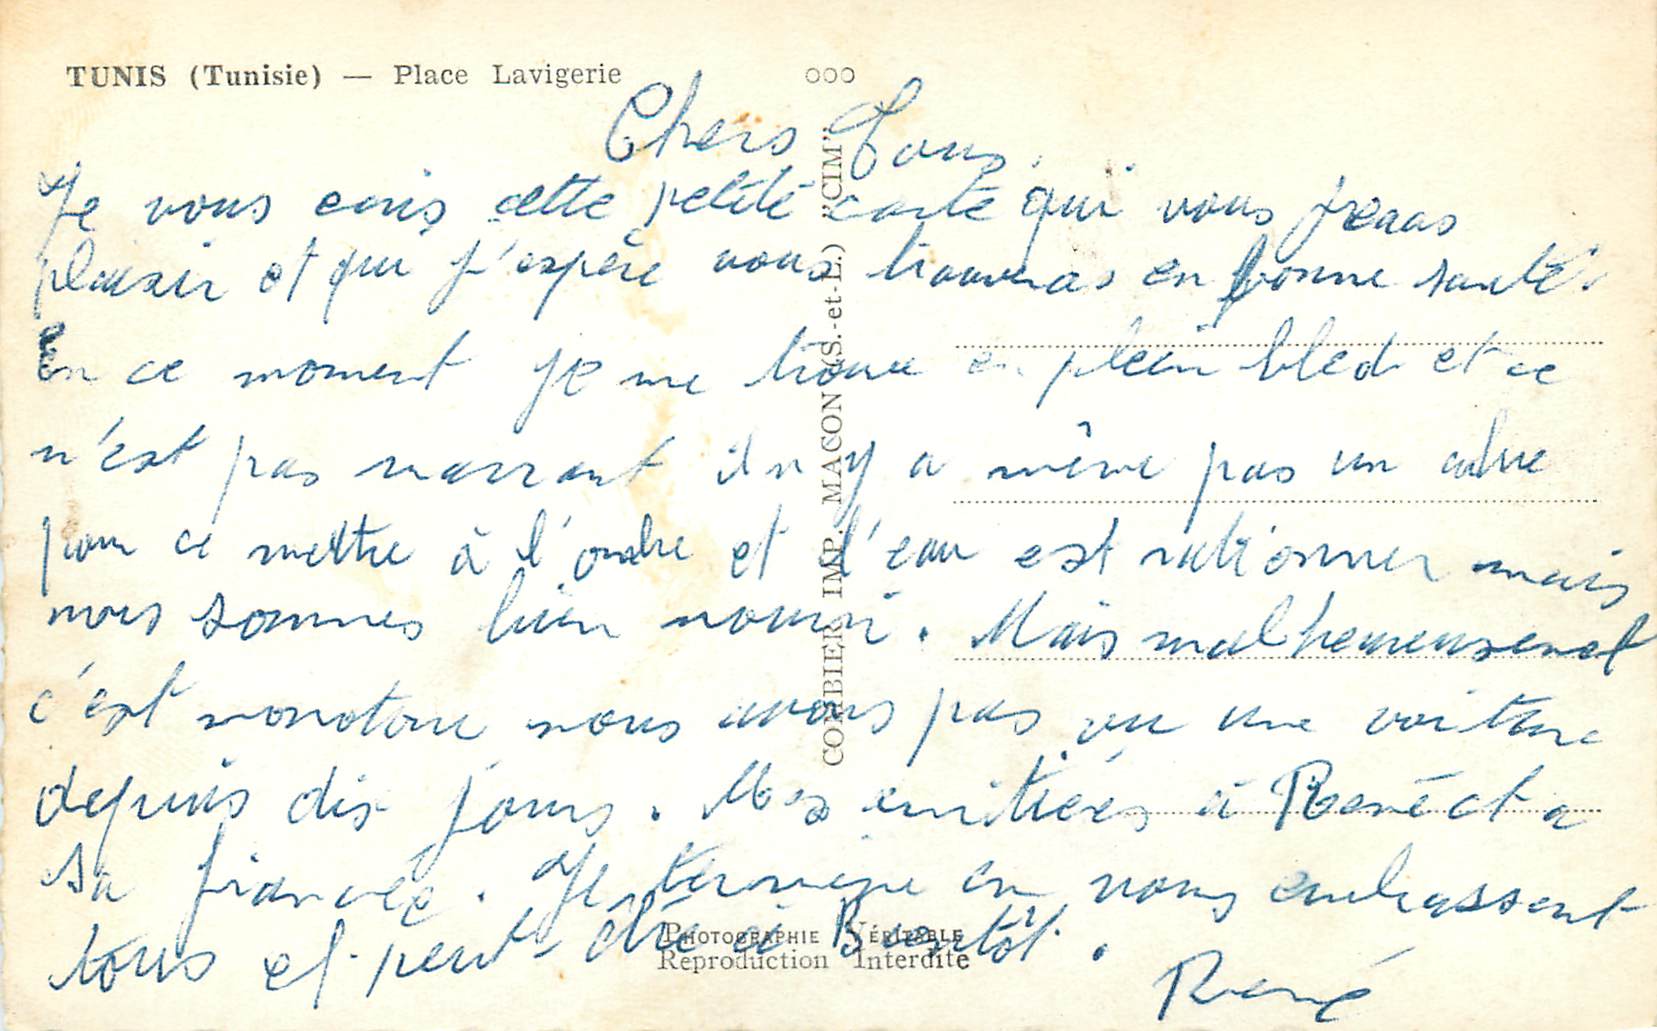 TUNIS (Tunisie) — Place Lavigerie
ooo
Chers Tous.
Je vous ecris cette petite carte qui vous feras
plaisir et qui j'espère vous trouveras en bonne santé.
En ce moment je me trouve en plein bled et ce
n'est pas marrant il n y a même pas un arbre
pour ce mettre à l'ombre et l'eau est rationner mais
nous sommes bien nourri. Mais malheureusenet
c'est monotone nous avons pas vu une voiture
depuis dix jours. Mes amitiées à René et a
sa fiancée. Je termine en vous embrassent
tous et peut-être a Bientôt.
René
COMBIER IMP. MACON (S.-et-L.) "CIM"
PHOTOGRAPHIE VÉRITABLE
Reproduction Interdite